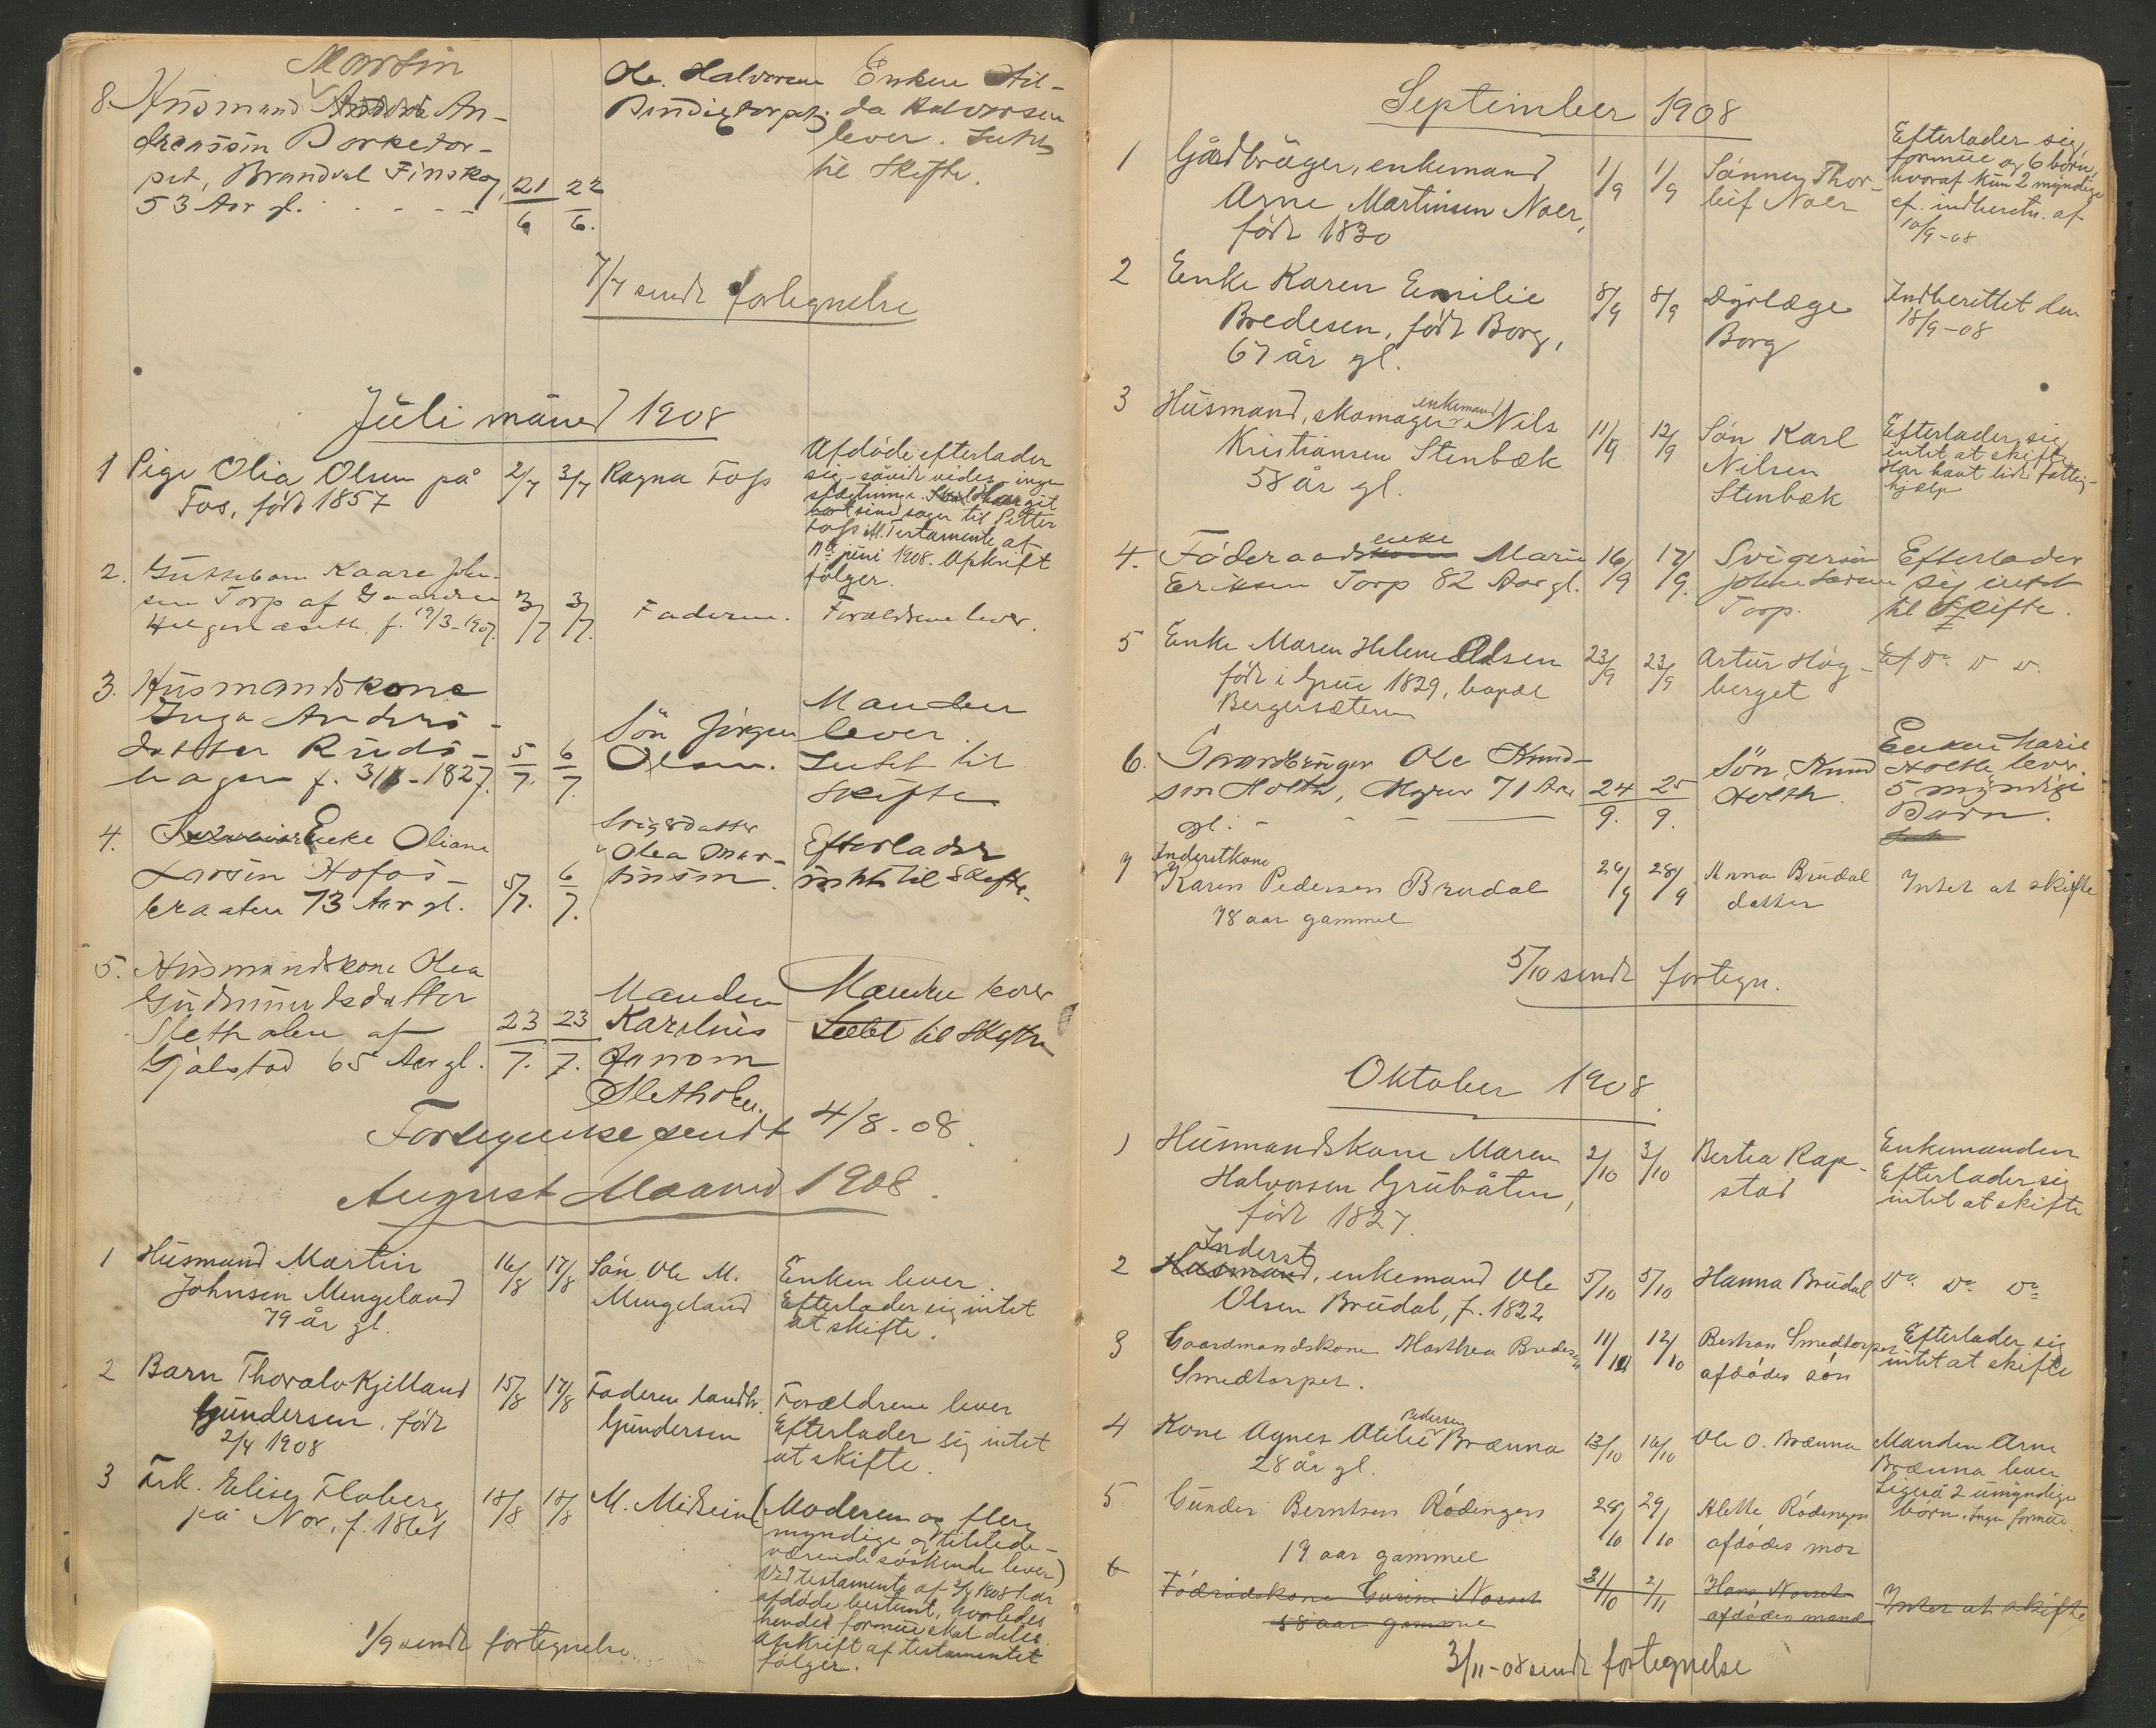 Martin
8. Husmand An-
dreassen Borketor-
pet, Brandval Finskog, 21/6 22/6.
53 Aar gl.
Ole Halvorsen
Enken Hil-
da Halvorsen
lever. Intet
til Skifte.
7/7 sendt fortegnelse
Juli måned 1908
1 Pige Olia Olsen på 2/7 3/7 Ragna Foss
Fos, født 1857
Afdøde efterlader
sig - såvidt vides - ingen
slægtninge. Skal har git
sine sager til Petter
Foss ifl. Testamente af
juni 1908. Afskrift
følger.
2. Guttebarn Kaare John-
sen Torp af Gaarden
f. 19/3-1907. 3/7 3/7. Faderen. Forældrene lever.
3. Husmandskone
Inga Anders-
datter Ruds-
hagen f. 1827. 5/7. 6/7.
Søn Jørgen
Olsen.
Manden
lever.
Intet til
Skifte
4. Enke Oliane
Larsen Hofos-
braaten 73 Aar gl. 5/7. 6/7.
Svigerdatter
Olea Mar-
tinsen.
Efterlader
intet til Skifte.
5. Husmandskone Olea
Gudmundsdatter
Sletholen af
Gjølstad 65 Aar gl. 23/7. 23/7.
Manden
Karelius
Jansen
Sletholen.
Manden lever
Intet til Skifte
Fortegnelse sendt 4/8-08.
August Maaned 1908.
1 Husmand Martin 16/8 17/8 Søn Ole M. Enken lever.
Johnsen Mengeland Mengeland Efterlader sig intet
79 år gl. at skifte.
2 Barn Thoralv Kjelland 15/8 17/8 Faderen landh. Forældrene lever
Gundersen, født Gundersen Efterlader sig intet
2/4 1908 at skifte.
3 Frk. Elise Floberg 18/8 18/8
på Nor, f. 1861
(Moderen og flere
myndige og tilstede-
værende søskende lever)
Ved testamente af 1908 har
afdøde bestemt, hvorledes
hendes formue skal deles.
Afskrift af testamentet
følger.
1/9 sendt fortegnelse.
September 1908
1 Gårdbruger, enkemand 1/9 1/9 Sønnen Thor-
Arne Martinsen Noer, leif Noer
født 1830
Efterlader sig
formue og 6 børn,
hvoraf kun 2 myndige
cf. indberetn. af
10/9-08
2 Enke Karen Emilie 8/9 8/9 Dyrlæge Indberettet den
Bredesen, født Borg, Borg 18/9-08
67 år gl.
3 Husmand, skomager enkemand Nils 11/9 12/9 Søn Karl
Kristiansen Stenbæk Nilsen
58 år gl. Stenbæk
Efterlader sig
intet at skifte
Har havt lidt fattig-
hjælp
4. Føderaadskone enke Marie 16/9 17/9. Svigersøn Efterlader
Eriksen Torp 82 Aar gl. Johan Larsen sig intet
Torp. til Skifte.
5 Enke Maren Helene Olsen 23/9 23/9 Artur Høg-
født i Grue 1829, bopæl berget
Bergersæteren
Do do do.
6. Gaardbruger Ole Knud-
sen Holth, 71 Aar 24/9. 25/9.
gl.
Søn, Knud
Holth.
Enken Marie
Holth lever.
5 myndige
Barn.
7 Inderstkone
Karen Pedersen Brudal 26/9 28/9 Anna Brudal Intet at skifte
78 aar gammel datter
5/10 sendt fortegn.
Oktober 1908.
1 Husmandskone Maren 2/10 3/10 Bertea Rap- Enkemanden
Halvorsen Grubråten, stad Efterlader sig
født 1827. intet at skifte
Inderst
2 Husmand, enkemand Ole 5/10 5/10 Hanna Brudal Do Do Do
Olsen Brudal, f. 1822
3 Gaardmandskone Marthea Bredesen 11/10 12/10 Bertran Smedtorpet Efterlader sig
Smedtorpet. afdødes søn intet at skifte
4 Kone Agnes Otilie Pedersen Brænna 13/10 16/10 Ole O. Brænna Manden Arne
28 år gl. Brænna lever
Ligeså 2 umyndige
børn. Ingen formue.
5 Gunder Berntsen Rødingen 28/10 29/10 Alette Rødingen
19 aar gammel afdødes mor
6 Føderådskone Gurine Norset 31/10 2/11 Hans Norset Intet at skifte
58 aar gamme afdødes mand
3/11-08 sendt fortegnelse